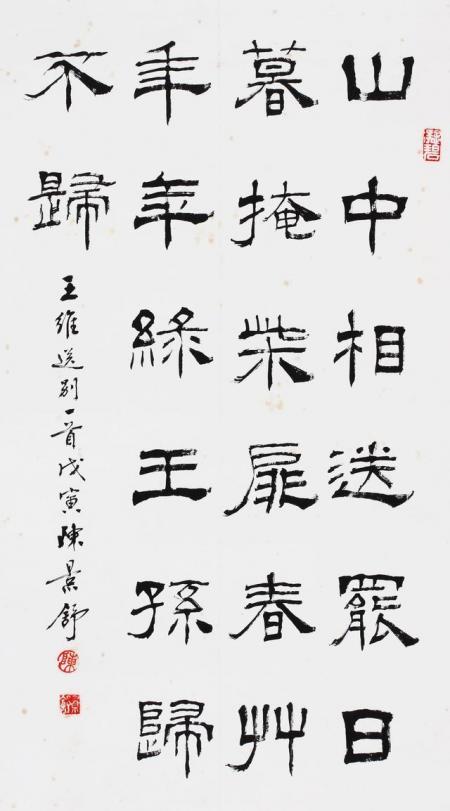 山中相送罷日
暮掩柴扉春艸
年年綠王孫歸
不歸
王維送別一首戊寅陳景舒
陳